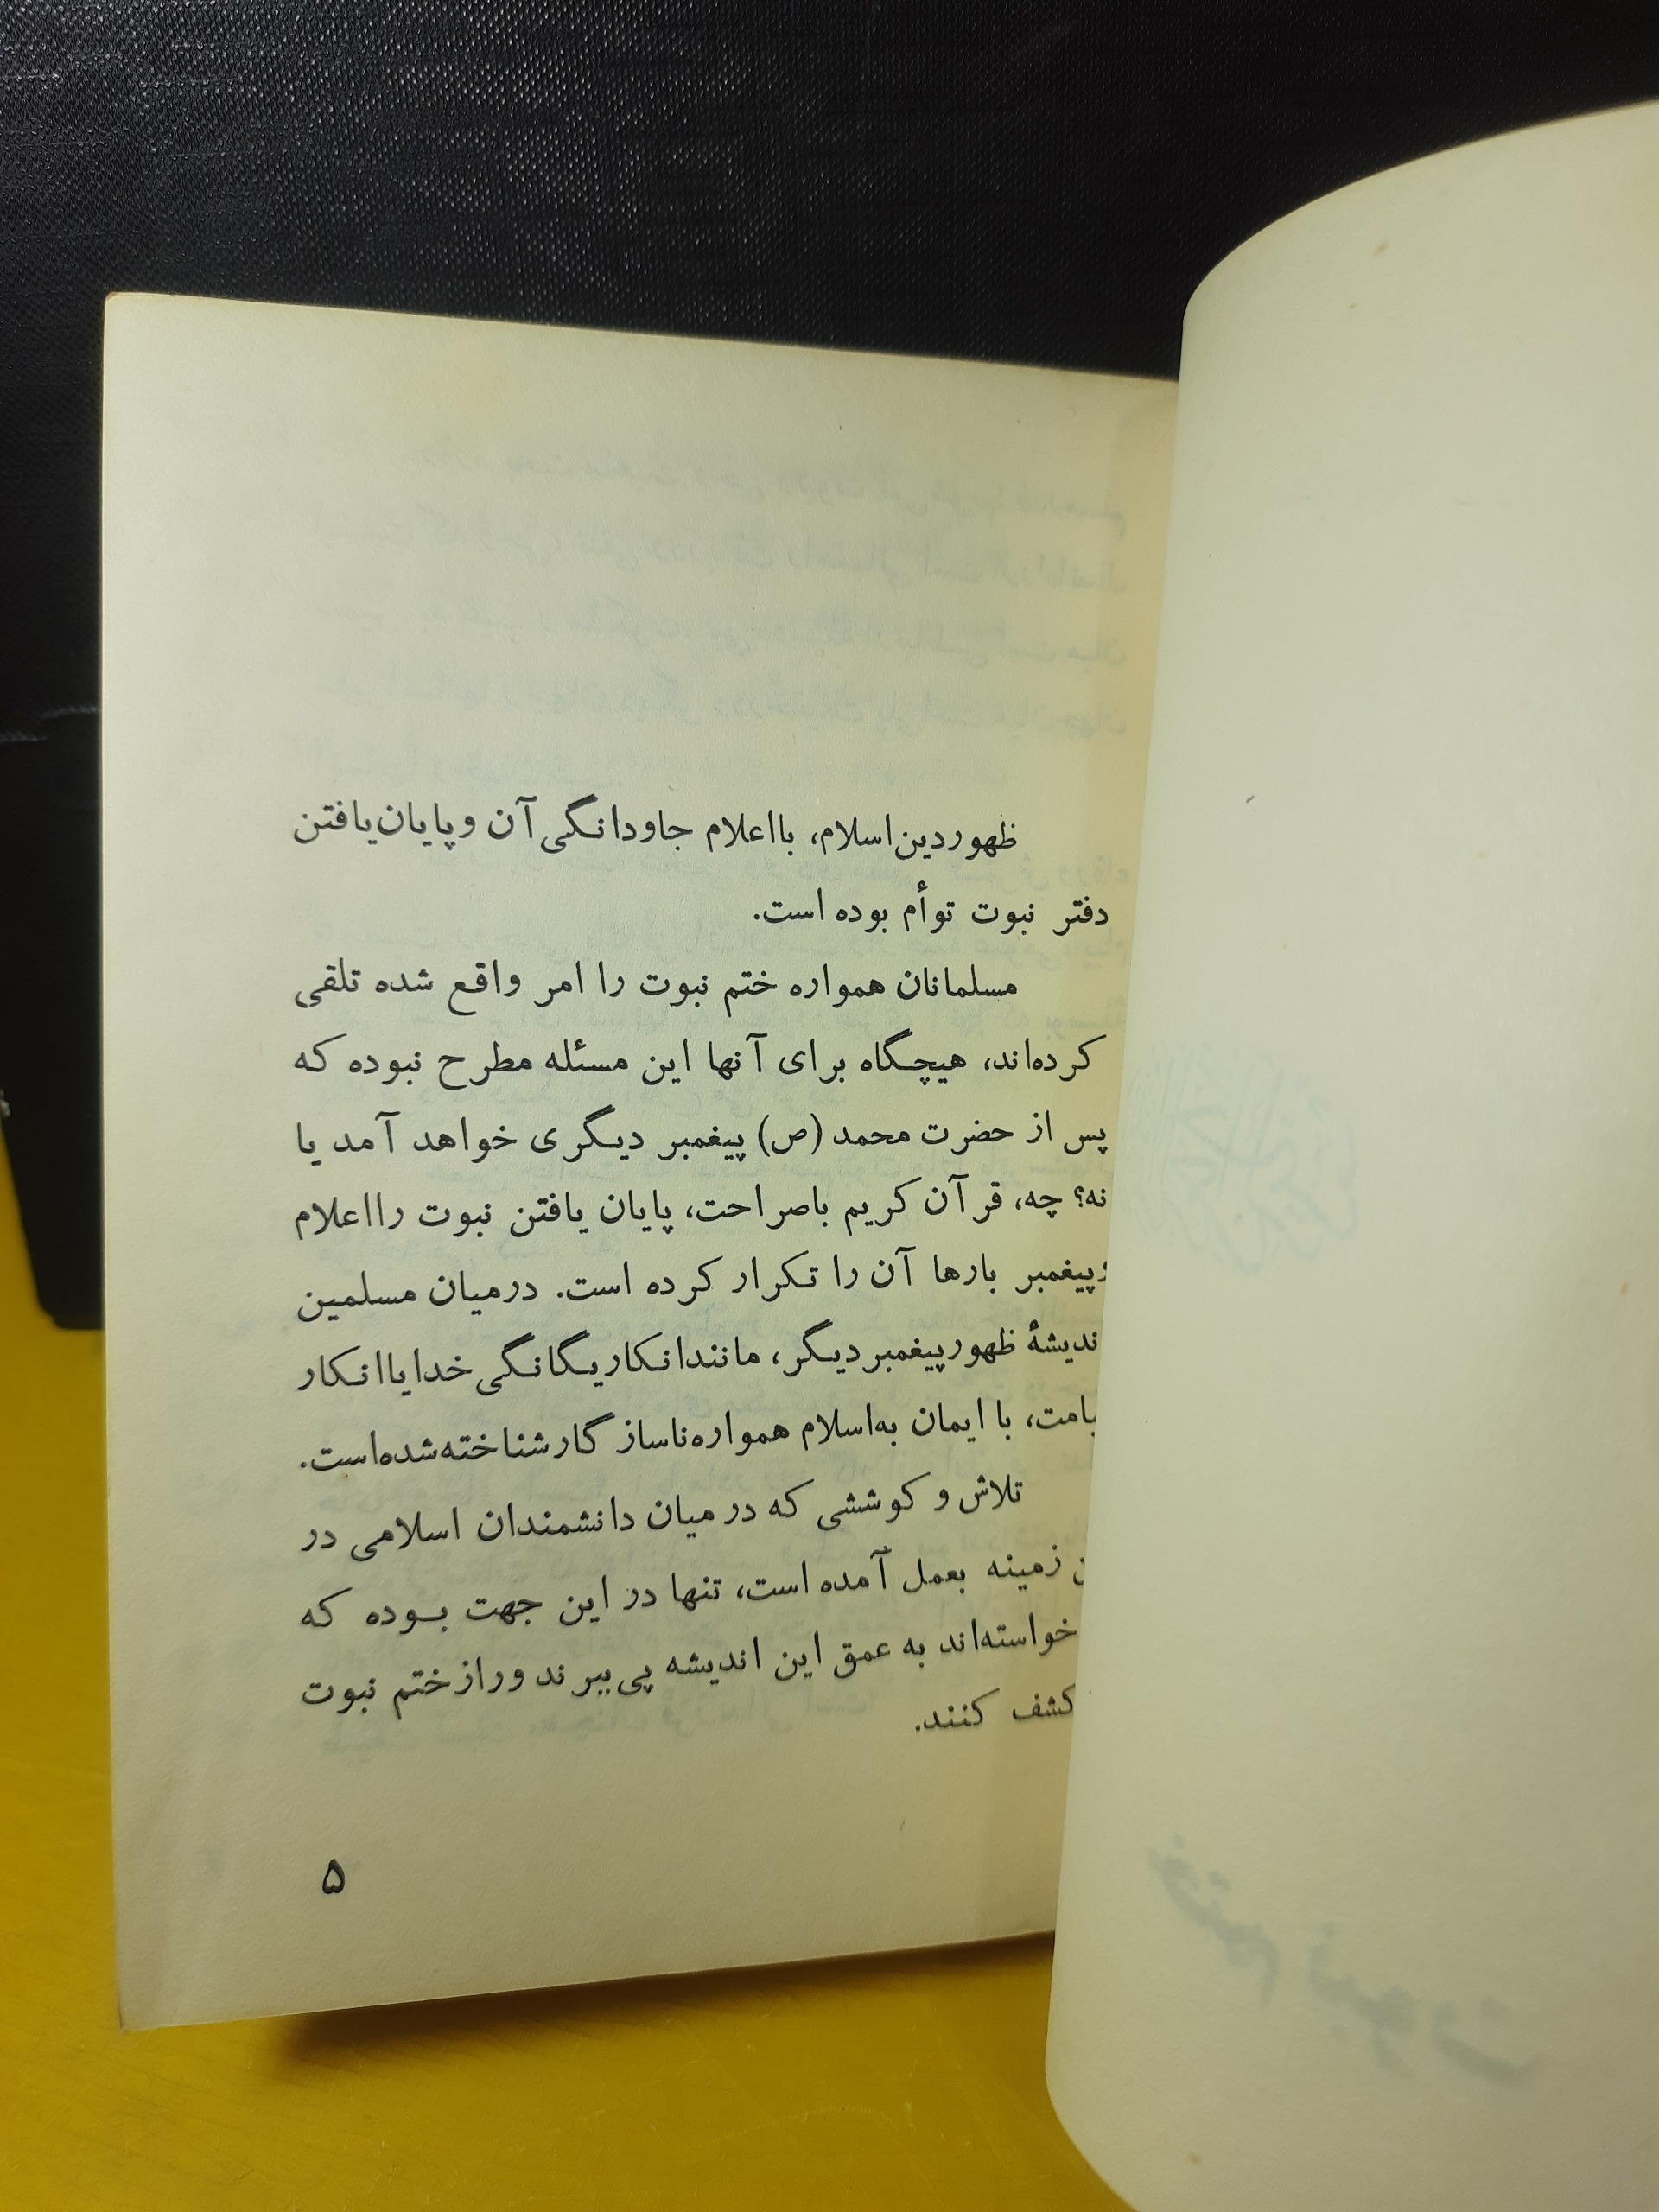 ظهور دین اسلام، با اعلام جاودانگی آن و پایان یافتن
دفتر نبوت توأم بوده است.
مسلمانان همواره ختم نبوت را امر واقع شده تلقی
کرده‌اند، هیچگاه برای آنها این مسئله مطرح نبوده که
پس از حضرت محمد (ص) پیغمبر دیگری خواهد آمد یا
نه؟ چه، قرآن کریم باصراحت، پایان یافتن نبوت را اعلام
وپیغمبر بارها آن را تکرار کرده است. درمیان مسلمین
ندیشهٔ ظهور پیغمبر دیگر، مانند انکار یگانگی خدا یا انکار
با ایمان به‌اسلام همواره ناسازگار شناخته شده‌است.
تلاش و کوششی که در میان دانشمندان اسلامی در
زمینه بعمل آمده است، تنها در این جهت بوده که
خواسته‌اند به عمق این اندیشه پی ببرند وراز ختم نبوت
کشف کنند.
۵